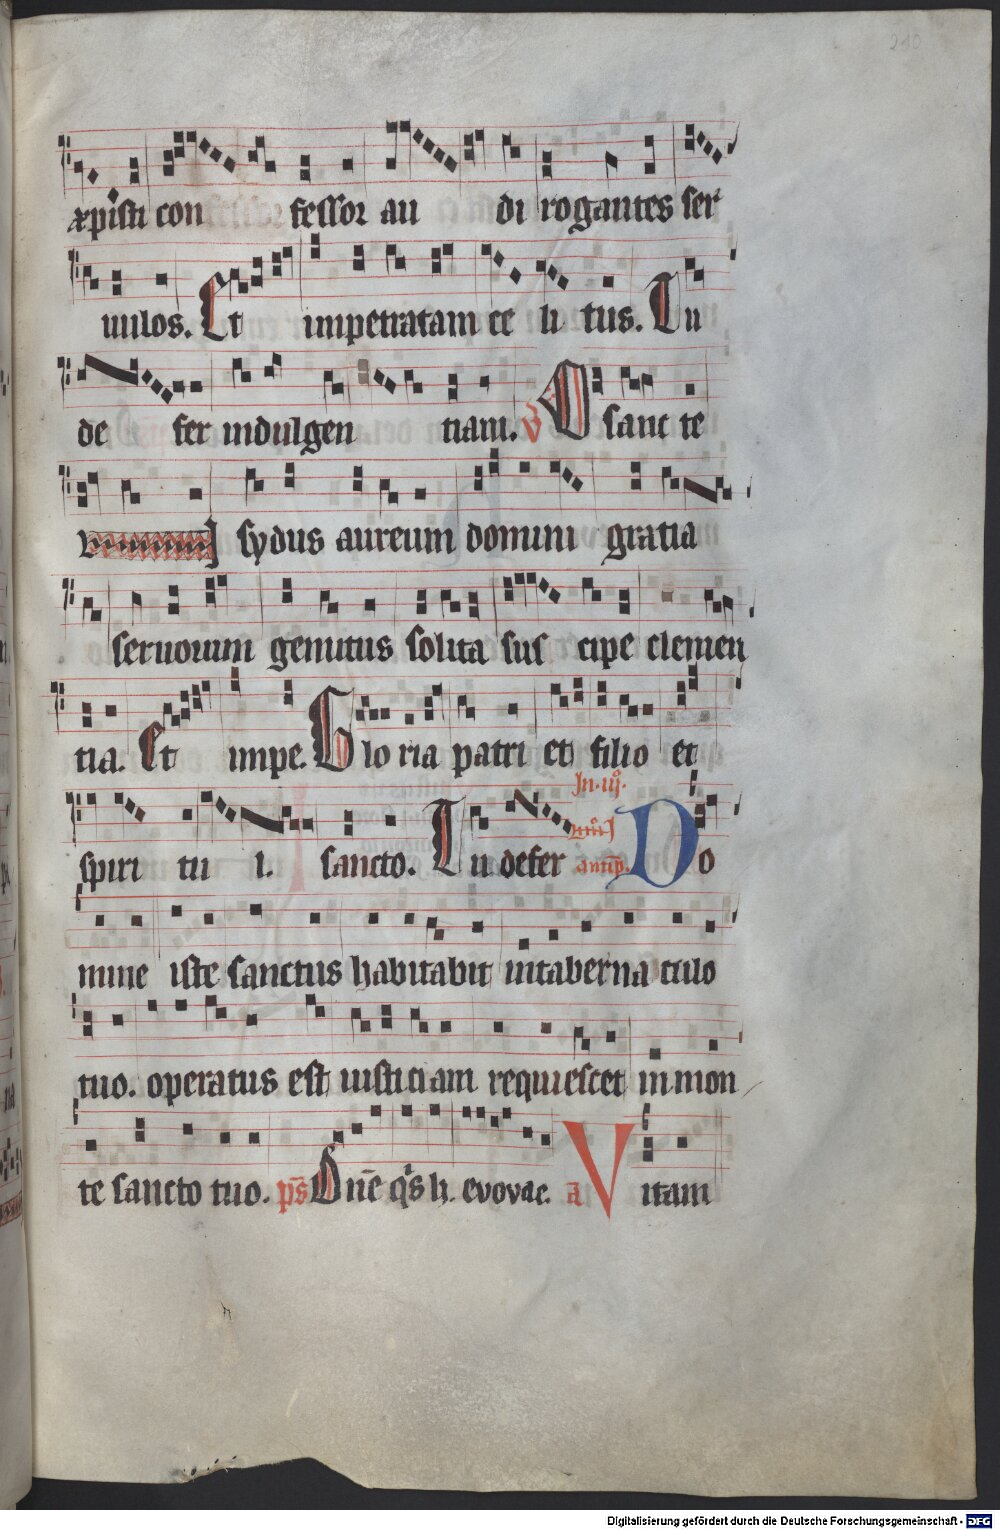 210
xpisti con fessor au di rogantes ser
uulos. Et impetratam ce li tus. Tu
de fer indulgen tiam. V O sanc te
sydus aureum domini gratia
seruorum gemitus solita sus cipe clemen
tia. Et impe. Glo ria patri et filio et
In .iii.
spiri tu i. sancto. Tu defer antip. Do
mine iste sanctus habitabit in taberna culo
tuo. operatus est iusticiam requiescet in mon
te sancto tuo. ps Dne qs h. evovae. a Vitam
Digitalisierung gefördert durch die Deutsche Forschungsgemeinschaft - DFG